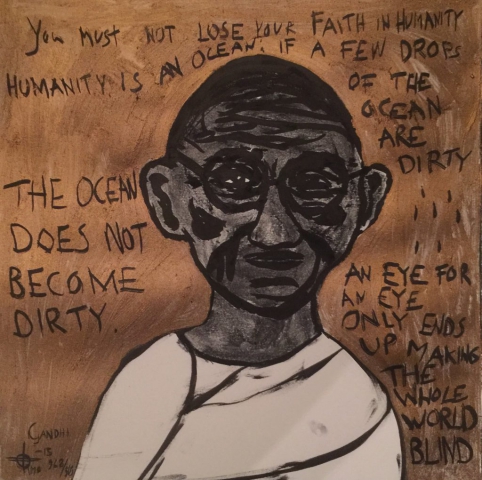 You must NOT LOSE YOUR FAITH IN HUMANITY
HUMANITY IS AN OCEAN. IF A FEW DROPS
OF THE
OCEAN
ARE
DIRTY
THE OCEAN
DOES NOT
BECOME
DIRTY.
AN EYE FOR
AN EYE
ONLY ENDS
UP MAKING
THE
WHOLE
WORLD
BLIND
GANDHI